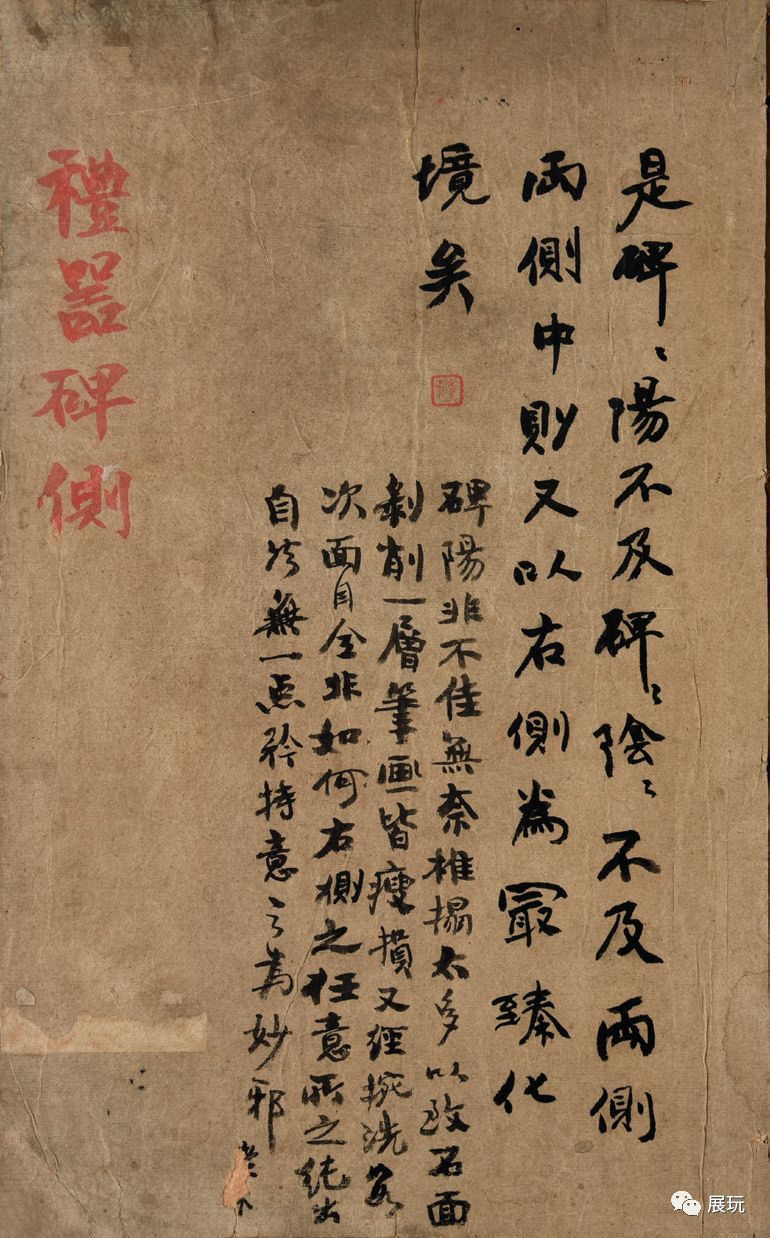 是碑〻陽不及碑〻陰〻不及兩側
兩側中則又以右側為冣臻化
境矣
碑陽非不佳無奈椎搨太多以致石面
剝削一層筆画皆瘦損又經挽洗
次面目全非如何右側之任意所之純出
自然無一点矜持意之為妙邪
禮器碑側
展玩